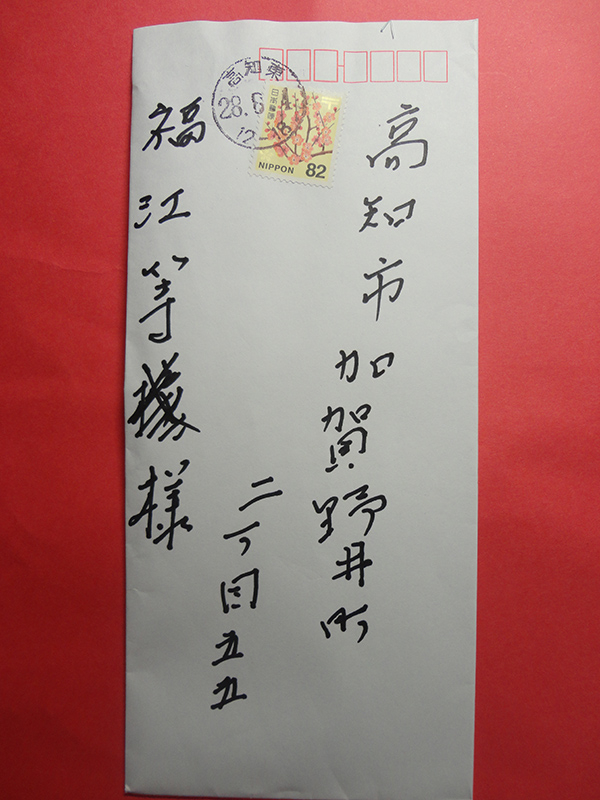 高知市加賀野井町
二丁目五五
福江等様
高知東
28.6.
12-18
日本郵便
NIPPON 82